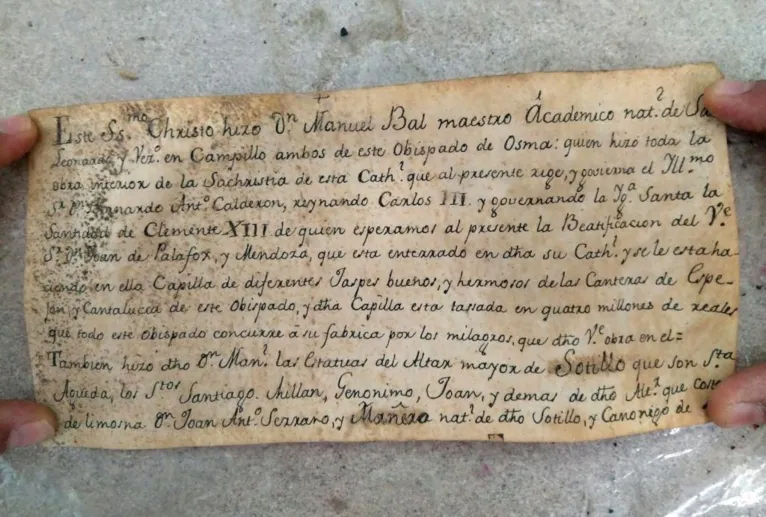 Este SS.mo Christo hizo Dn Manuel Bal maestro Académico nat.l de Sa
Leonardo y Vez.o en Campillo ambos de este Obispado de Osma: quien hizo toda la
obra interior de la Sachristia de esta Cath.l que al presente rige, y govierna el Ill.mo
Sr Dn Bernardo Ant.o Calderon, reynando Carlos III. y governando la Yg.a Santa la
Santidad de Clemente XIII de quien esperamos al presente la Beatificacion del V.e
Sr Dn Joan de Palafox, y Mendoza, que esta enterrado en dha su Cath.l y se le esta ha-
ciendo en ella Capilla de diferentes Jaspes buenos, y hermosos de las Canteras de Espe-
jon, y Cantalucia de este Obispado, y dha Capilla esta tassada en quatro millones de reales
que todo este obispado concurre a su fabrica por los milagros, que dho V.e obra en el=
Tambien hizo dho Dn Man.l las Estatuas del Altar mayor de Sotillo que son Sta
Agueda, los Stos Santiago, Millan, Geronimo, Joan, y demas de dho que
de limosna Dn Joan Ant.o Serrano, y Mañero nat.l de dho Sotillo, y Canonigo de